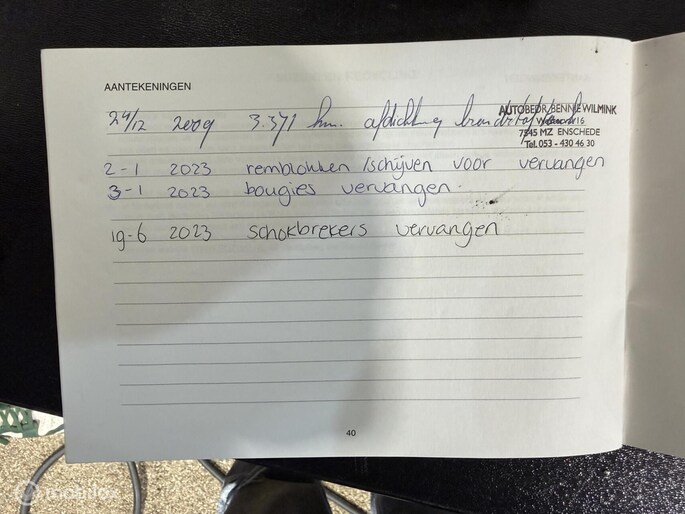 AANTEKENINGEN
24/12 2009 3.371 km. afdichting
AUTOBEDR. BENNIE WILMINK
16
7545 MZ ENSCHEDE
Tel. 053 - 430 46 30
2-1 2023 remblokken /schijven voor vervangen
3-1 2023 bougies vervangen.
19-6 2023 schokbrekers vervangen
40
mobilox